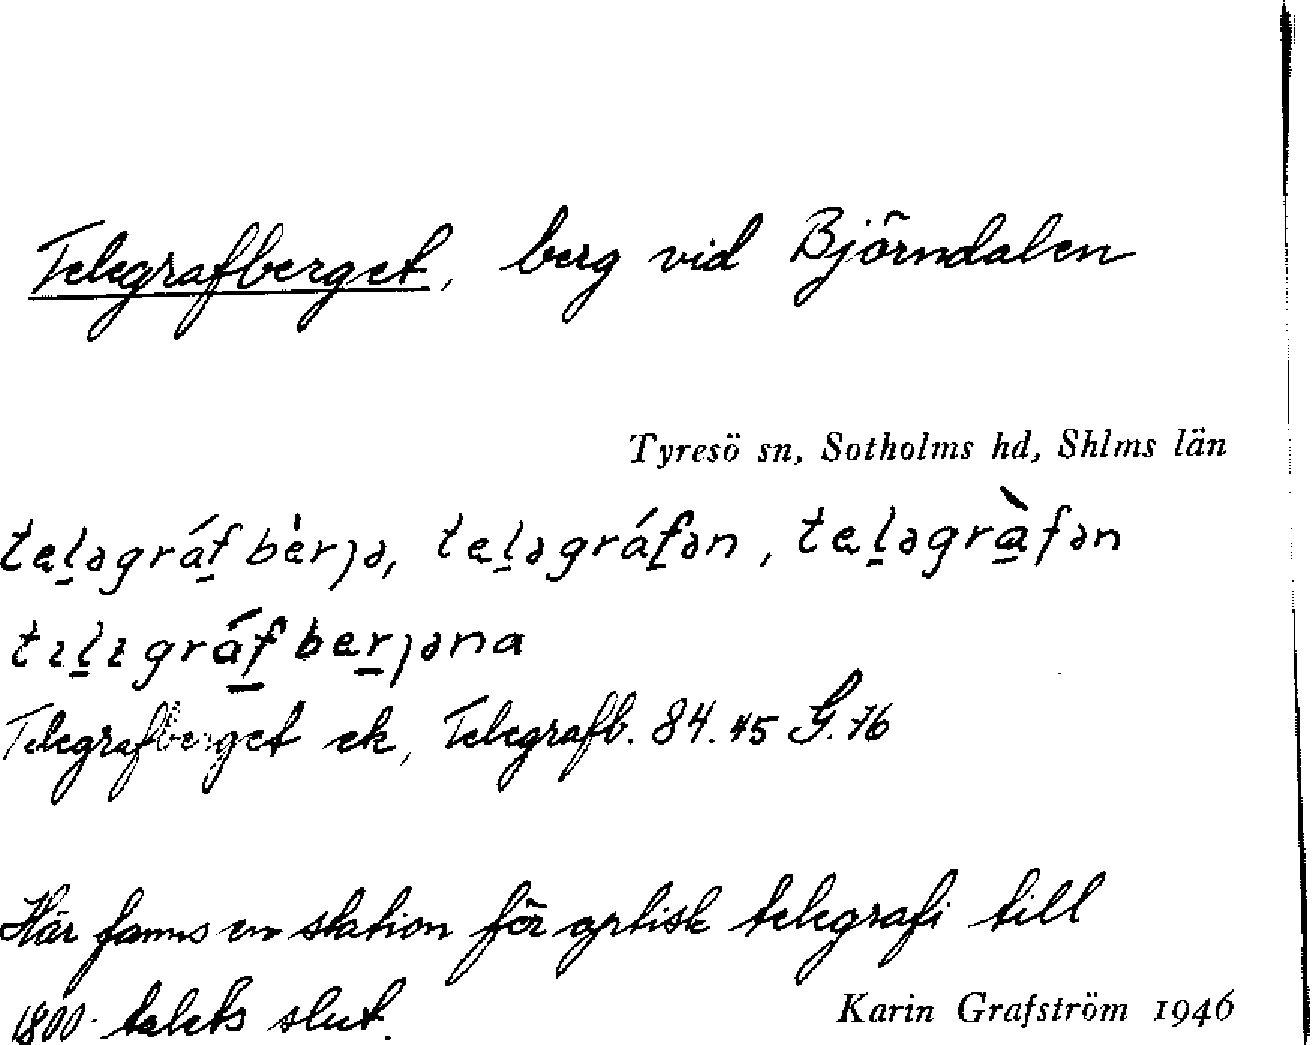 Telegrafberget, berg vid Björndalen
Tyresö sn, Sotholms hd, Shlms län
telegráfbèrjə, telegráfən, telegràfən
tılıgráfberjəna
Telegrafberget ek, Telegrafb. 84. 45 G. 76
Här fanns en station för optisk telegrafi till
1800-talets slut.
Karin Grafström 1946